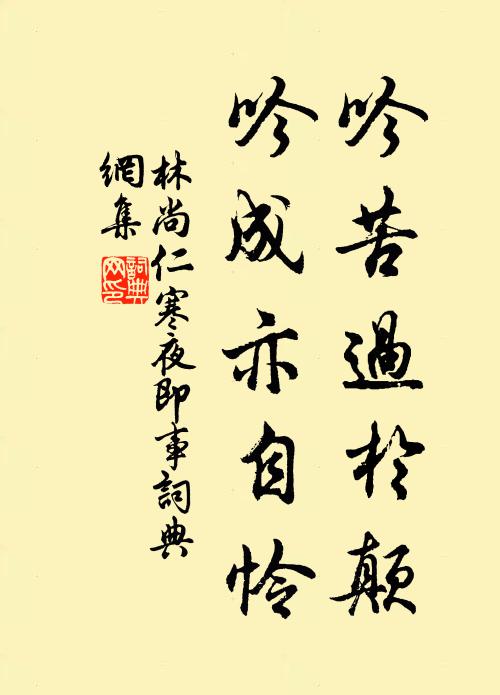 吟苦過於顛
吟成亦自怜
林尚仁寒夜即事詞典
網集
詞典網印